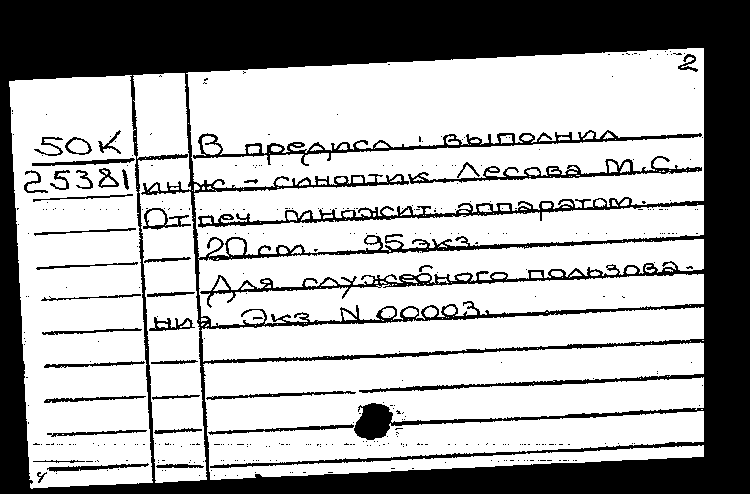 2
50К В предисл.: выполнил
25381 инж.-синоптик Лесова М.С.
Отпеч. множит. аппаратом.
20 cm. 95 экз.
Для служебного пользова-
ния. Экз. N 00003.